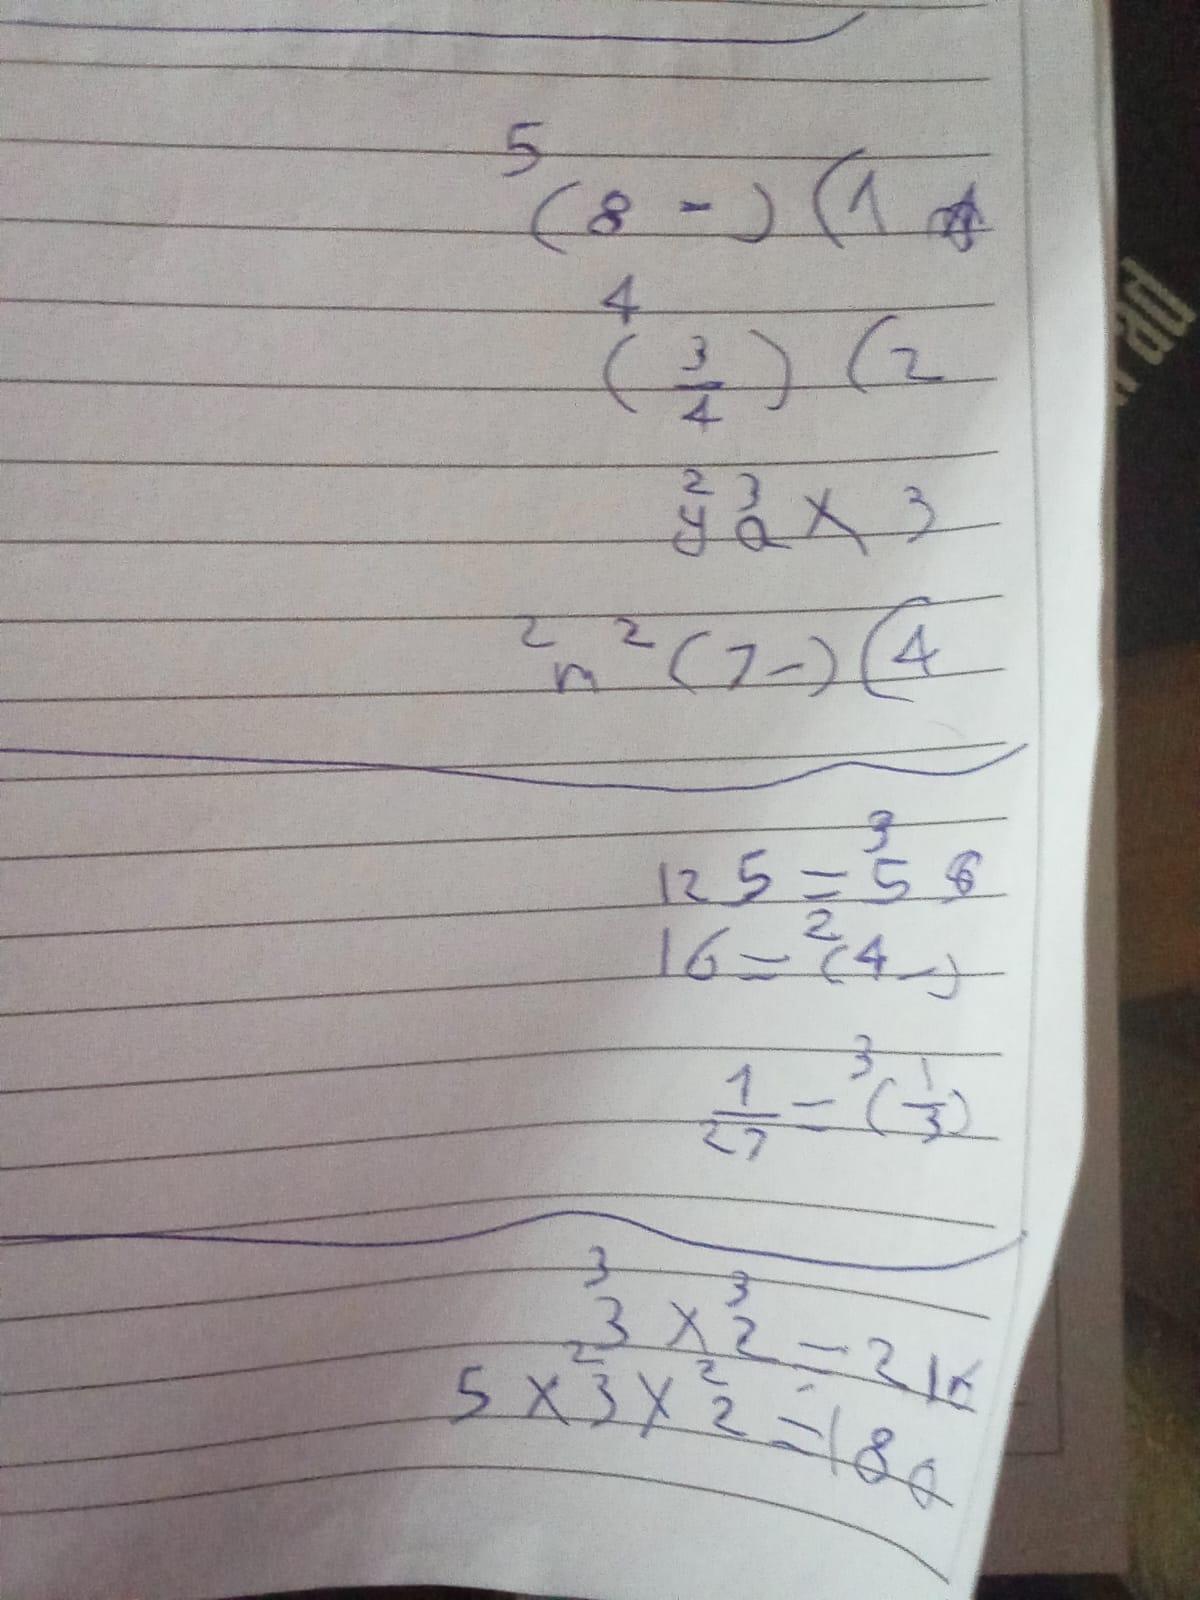 (1 (-8)^5
(2 (3/4)^4
3 × a^3 y^2
(4 (-7)^2 m^2
5^3 = 125
(-4)^2 = 16
(1/3)^3 = 1/27
21 = 2^3 × 3^3
180 = 2^2 × 3^2 × 5